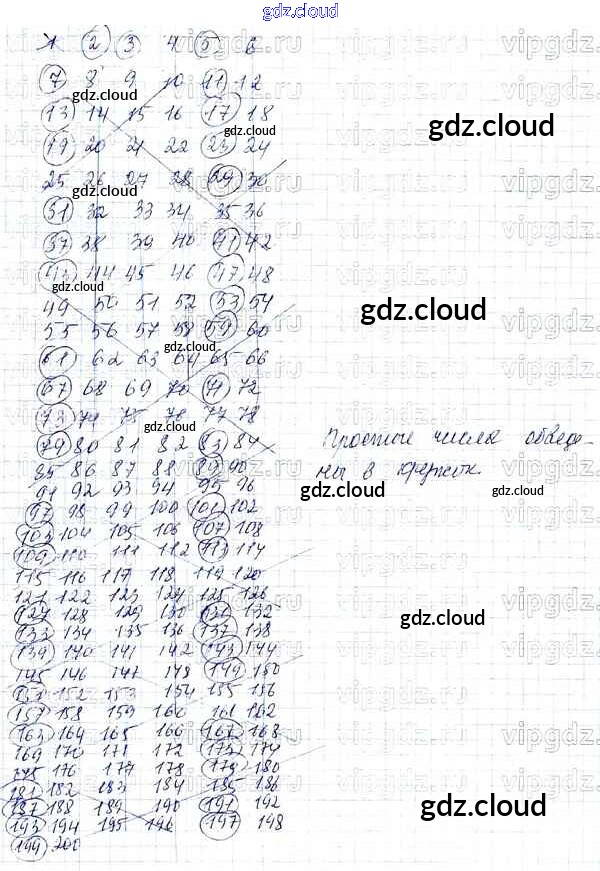 gdz.cloud
1 2 3 4 5 6
7 8 9 10 11 12
13 14 15 16 17 18
19 20 21 22 23 24
25 26 27 28 29 30
31 32 33 34 35 36
37 38 39 40 41 42
43 44 45 46 47 48
49 50 51 52 53 54
55 56 57 58 59 60
61 62 63 64 65 66
67 68 69 70 71 72
73 74 75 76 77 78
79 80 81 82 83 84
85 86 87 88 89 90
91 92 93 94 95 96
97 98 99 100 101 102
103 104 105 106 107 108
109 110 111 112 113 114
115 116 117 118 119 120
121 122 123 124 125 126
127 128 129 130 131 132
133 134 135 136 137 138
139 140 141 142 143 144
145 146 147 148 149 150
151 152 153 154 155 156
157 158 159 160 161 162
163 164 165 166 167 168
169 170 171 172 173 174
175 176 177 178 179 180
181 182 183 184 185 186
187 188 189 190 191 192
193 194 195 196 197 198
199 200
Простые числа обведе-
ны в кружок.
gdz.cloud
gdz.cloud
gdz.cloud
gdz.cloud
gdz.cloud
gdz.cloud
gdz.cloud
gdz.cloud
gdz.cloud
gdz.cloud
gdz.cloud
gdz.cloud
vipgdz.ru